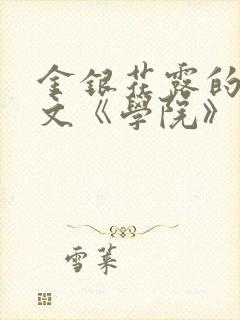 金銀花露的
文《學院》
雪葉